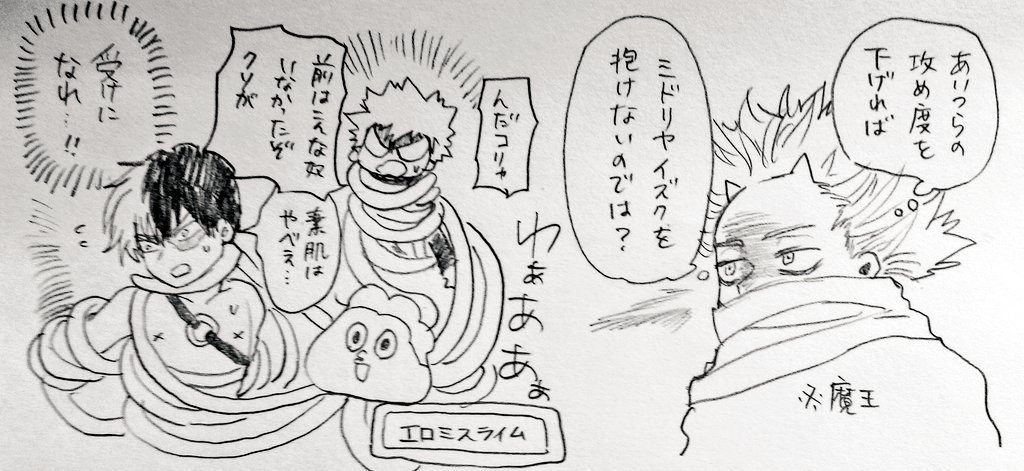 あいつらの
攻め度を
下げれば
ミドリヤイズクを
抱けないのでは？
※魔王
んだコリャ
前はこんな奴
いなかったぞ
クソが
素肌は
やべぇ…
受けに
なれ…!!
わぁあああぁ
エロミスライム